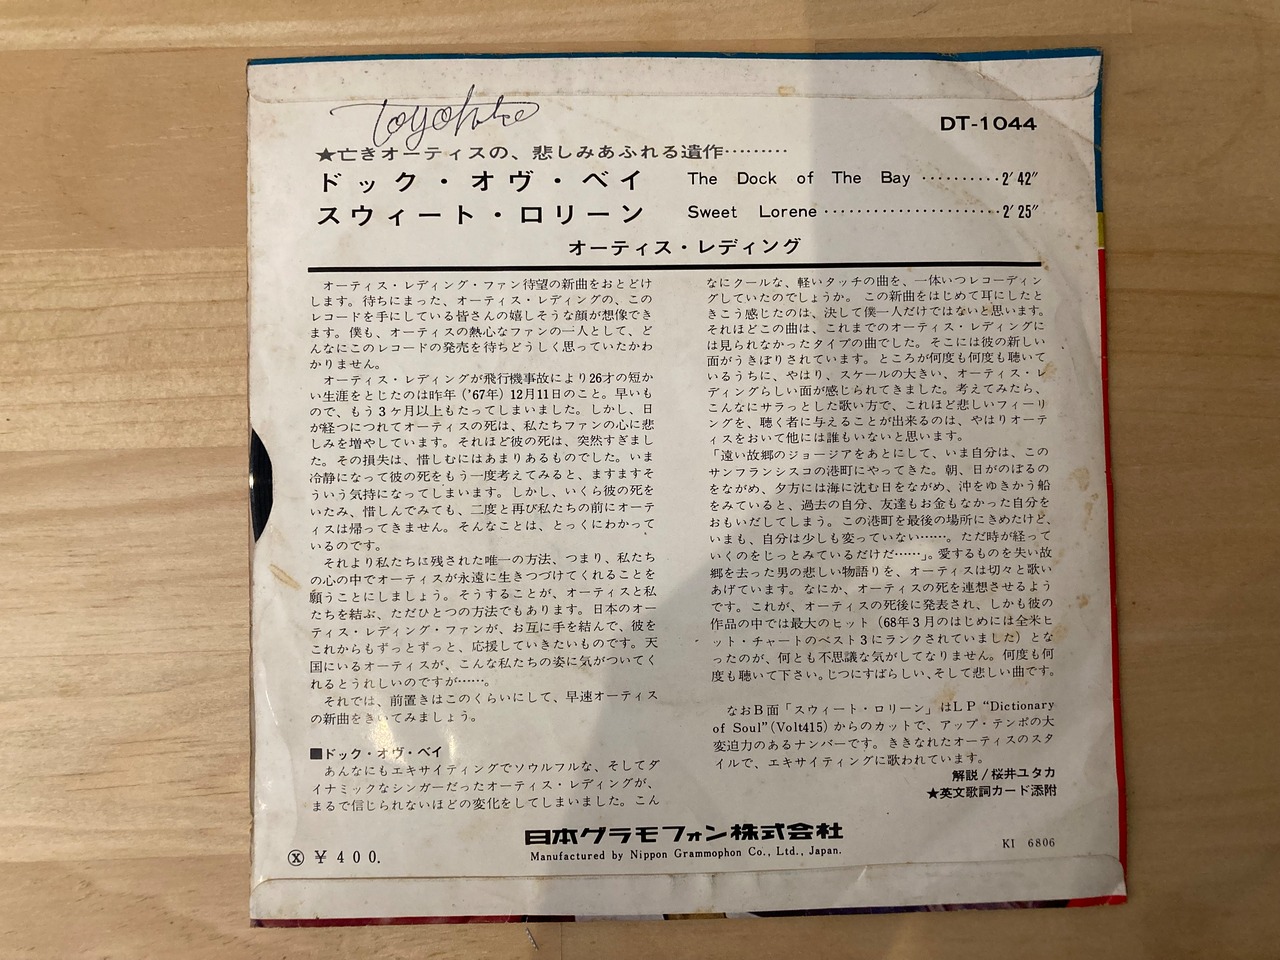 DT-1044
★亡きオーティスの、悲しみあふれる遺作………
ドック・オヴ・ベイ The Dock of The Bay ··········2′42″
スウィート・ロリーン Sweet Lorene ·······················2′25″
オーティス・レディング
オーティス・レディング・ファン待望の新曲をおとどけ
します。待ちにまった、オーティス・レディングの、この
レコードを手にしている皆さんの嬉しそうな顔が想像でき
ます。僕も、オーティスの熱心なファンの一人として、ど
んなにこのレコードの発売を待ちどうしく思っていたかわ
かりません。
オーティス・レディングが飛行機事故により26才の短か
い生涯をとじたのは昨年（'67年）12月11日のこと。早いも
ので、もう3ヶ月以上もたってしまいました。しかし、日
が経つにつれてオーティスの死は、私たちファンの心に悲
しみを増やしています。それほど彼の死は、突然すぎまし
た。その損失は、惜しむにはあまりあるものでした。いま
冷静になって彼の死をもう一度考えてみると、ますますそ
ういう気持になってしまいます。しかし、いくら彼の死を
いたみ、惜しんでみても、二度と再び私たちの前にオーテ
ィスは帰ってきません。そんなことは、とっくにわかって
いるのです。
それより私たちに残された唯一の方法、つまり、私たち
の心の中でオーティスが永遠に生きつづけてくれることを
願うことにしましょう。そうすることが、オーティスと私
たちを結ぶ、ただひとつの方法でもあります。日本のオー
ティス・レディング・ファンが、お互に手を結んで、彼を
これからもずっとずっと、応援していきたいものです。天
国にいるオーティスが、こんな私たちの姿に気がついてく
れるとうれしいのですが……。
それでは、前置きはこのくらいにして、早速オーティス
の新曲をきいてみましょう。
■ドック・オヴ・ベイ
あんなにもエキサイティングでソウルフルな、そしてダ
イナミックなシンガーだったオーティス・レディングが、
まるで信じられないほどの変化をしてしまいました。こん
なにクールな、軽いタッチの曲を、一体いつレコーディン
グしていたのでしょうか。この新曲をはじめて耳にしたと
きこう感じたのは、決して僕一人だけではないと思います。
それほどこの曲は、これまでのオーティス・レディングに
は見られなかったタイプの曲でした。そこには彼の新しい
面がうきぼりされています。ところが何度も何度も聴いて
いるうちに、やはり、スケールの大きい、オーティス・レ
ディングらしい面が感じられてきました。考えてみたら、
こんなにサラっとした歌い方で、これほど悲しいフィーリ
ングを、聴く者に与えることが出来るのは、やはりオーテ
ィスをおいて他には誰もいないと思います。
「遠い故郷のジョージアをあとにして、いま自分は、この
サンフランシスコの港町にやってきた。朝、日がのぼるの
をながめ、夕方には海に沈む日をながめ、沖をゆきかう船
をみていると、過去の自分、友達もお金もなかった自分を
おもいだしてしまう。この港町を最後の場所にきめたけど、
いまも、自分は少しも変っていない……。ただ時が経って
いくのをじっとみているだけだ……」。愛するものを失い故
郷を去った男の悲しい物語りを、オーティスは切々と歌い
あげています。なにか、オーティスの死を連想させるよう
です。これが、オーティスの死後に発表され、しかも彼の
作品の中では最大のヒット（68年3月のはじめには全米ヒ
ット・チャートのベスト3にランクされていました）とな
ったのが、何とも不思議な気がしてなりません。何度も何
度も聴いて下さい。じつにすばらしい、そして悲しい曲です。
なおB面「スウィート・ロリーン」はLP “Dictionary
of Soul”(Volt415) からのカットで、アップ・テンポの大
変迫力のあるナンバーです。ききなれたオーティスのスタ
イルで、エキサイティングに歌われています。
解説/桜井ユタカ
★英文歌詞カード添附
日本グラモフォン株式会社
Manufactured by Nippon Grammophon Co., Ltd., Japan.
ⓧ ￥400.
KI 6806